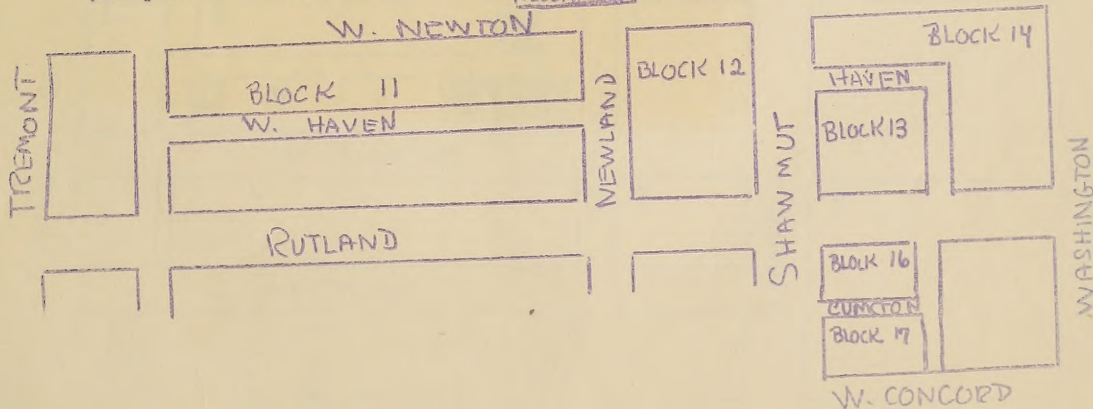 W. NEWTON
BLOCK 14
TREMONT
BLOCK 11
NEWLAND
BLOCK 12
HAVEN
W. HAVEN
SHAWMUT
BLOCK 13
WASHINGTON
RUTLAND
BLOCK 16
CUMSTON
BLOCK 17
W. CONCORD